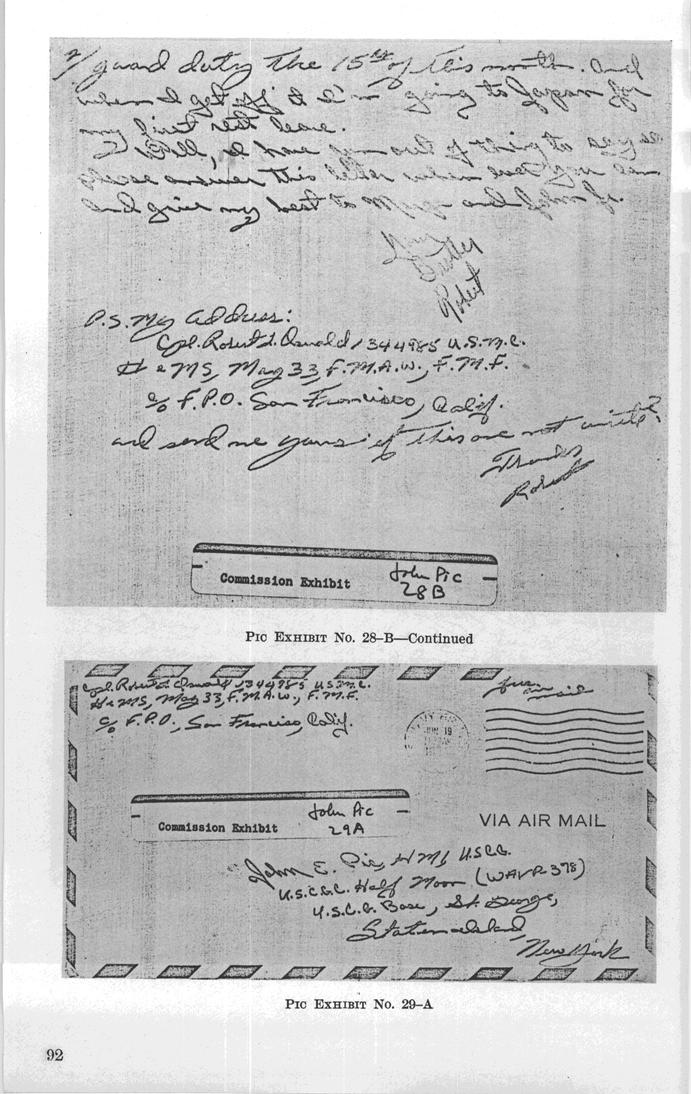 2/ guard duty the 15th of this month. And
when I get off it I'm going to Japan for
my first rest leave.
Well, I have run out of thing to say so
please answer this letter when ever you can
and give my best to Marge and John Jr.
Your
Brother
Robert
P.S. My Address:
Cpl. Robert L. Oswald 1344985 U.S.M.C.
H & MS, Mag 33, F.M.A.W., F.M.F.
c/o F.P.O. San Francisco, Calif.
and send me yours if this one not right?
Thanks
Robert
Commission Exhibit
John Pic
28B
PIC EXHIBIT No. 28–B—Continued
Cpl. Robert L. Oswald 1344985 U.S.M.C.
H & MS, Mag 33, F.M.A.W., F.M.F.
c/o F.P.O., San Francisco, Calif.
free
air
mail
JUN 19
John Pic
Commission Exhibit
29A
VIA AIR MAIL
John E. Pic, HM1 U.S.C.G.
U.S.C.G.C. Half Moon (WAVP-378)
U.S.C.G. Base, St. George,
Staten Island,
New York
PIC EXHIBIT No. 29–A
92